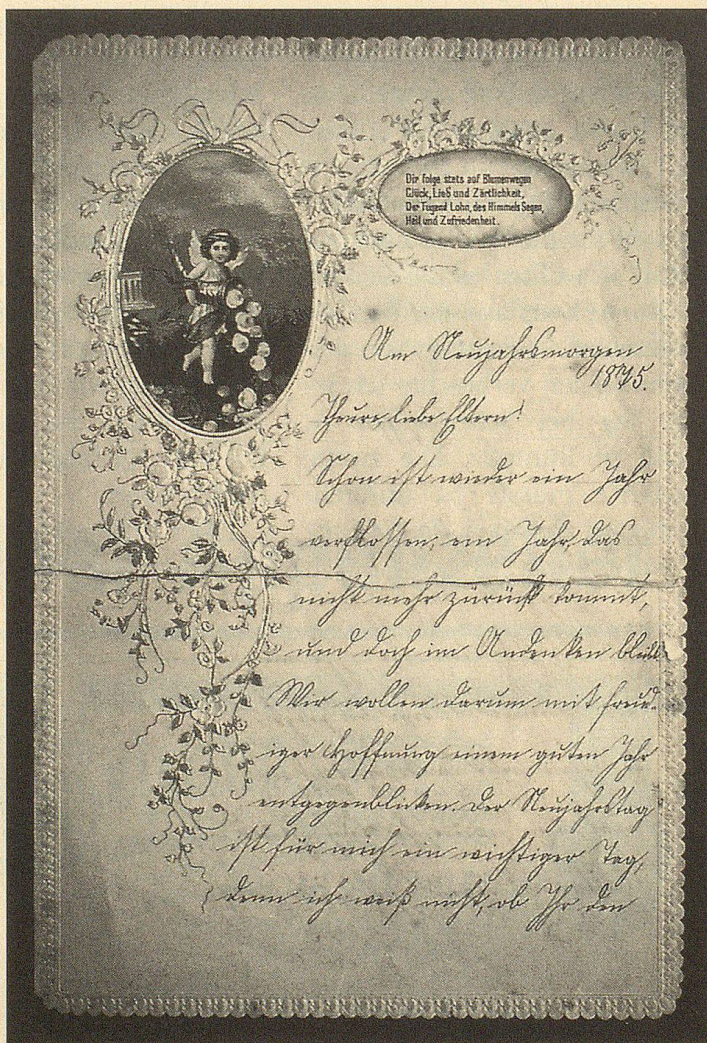 Dir folge stets auf Blumenwegen
Glück, Lieb und Zärtlichkeit,
Der Tugend Lohn, des Himmels Segen,
Heil und Zufriedenheit.
Am Neujahrsmorgen
1875.
Theure, liebe Eltern!
Schon ist wieder ein Jahr
verflossen, ein Jahr, das
nicht mehr zurück kommt,
und doch im Andenken bleibt.
Wir wollen darum mit freud-
iger Hoffnung einem guten Jahr
entgegenblicken. Der Neujahrstag
ist für mich ein wichtiger Tag,
denn ich weiß nicht, ob Ihr den